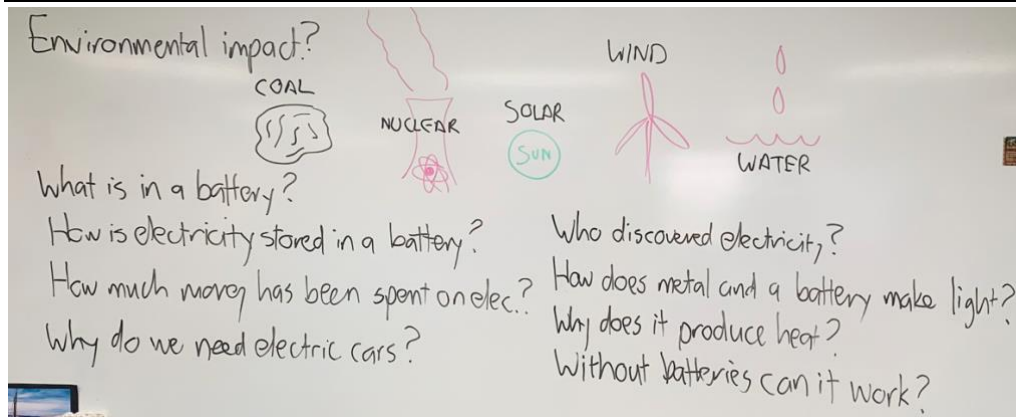 Environmental impact?
COAL
NUCLEAR
SOLAR
SUN
WIND
WATER
What is in a battery?
How is electricity stored in a battery?
How much money has been spent on elec.?
Why do we need electric cars?
Who discovered electricity?
How does metal and a battery make light?
Why does it produce heat?
Without batteries can it work?